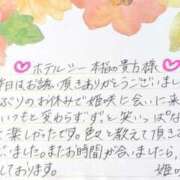 ホテルシー本館の貴方様
本日はお誘い頂きありがとうございました
ぶりのお休みで姫咲に会いに来
いつもと変わらずずっと笑っ
に楽しかったです。色々と教えて頂き
ございました。またお時間が合いましたら、
しております。 姫